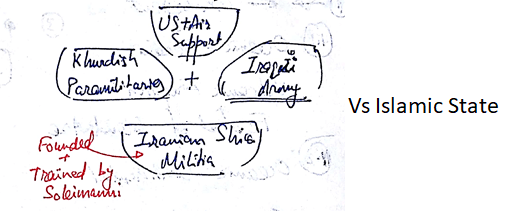 US+Air
Support
Khurdish
Paramilitaries
+
Iraqi
Army
Vs Islamic State
Iranian Shia
Militia
Founded
+
Trained by
Soleimanni